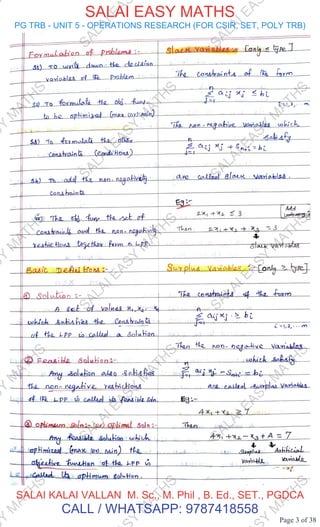 SALAI EASY MATHS
PG TRB - UNIT 5 - OPERATIONS RESEARCH (FOR CSIR, SET, POLY TRB)
Formulation of Problems :-
S1) To write down the decision
variables of the Problem
S2) To formulate the obj. func.
to be optimized (max (or) min)
S3) To formulate the other
constraints (conditions)
S4) To add the non-negativity
constraints
The obj func the set of
constraints and the non-negativity
restrictions together form a LPP.
Basic Definitions :-
① Solution :-
A set of values x₁, x₂..
which satisfies the constraints
of the LPP is called a solution
② Feasible Solution:-
Any solution also satisfies
the non-negative restrictions
of the LPP is called its feasible soln.
③ Optimum Soln:- (or) Optimal Soln:-
Any feasible solution which
optimized (max (or) min) the
objective function of the LPP is
called its optimum solution.
Slack Variables :- [only ≤ type]
The constraints of the form
n
Σ aij xj ≤ bi
j=1
The non-negative variables which
satisfy
n
Σ aij xj + Sm = bi
j=1
are called slack variables.
Eg:-
2x₁ + x₂ ≤ 3
Add
Then 2x₁ + x₂ + x₃ = 3
slack variables
Surplus Variables :- [only ≥ type]
The constraints of the form
n
Σ aij xj ≥ bi
j=1
i=1,2,...m
Then the non-negative variables
which satisfy
n
Σ aij xj - Sm = bi
j=1
are called surplus variables
Eg:-
4x₁ + x₂ ≥ 7
Then
4x₁ + x₂ - x₃ + A = 7
surplus Artificial
variable variable
SALAI KALAI VALLAN M. Sc., M. Phil , B. Ed., SET., PGDCA
CALL / WHATSAPP: 9787418558
Page 3 of 38